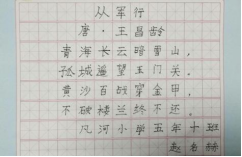 从军行
唐·王昌龄
青海长云暗雪山,
孤城遥望玉门关。
黄沙百战穿金甲,
不破楼兰终不还。
凡河小学五年十班
赵